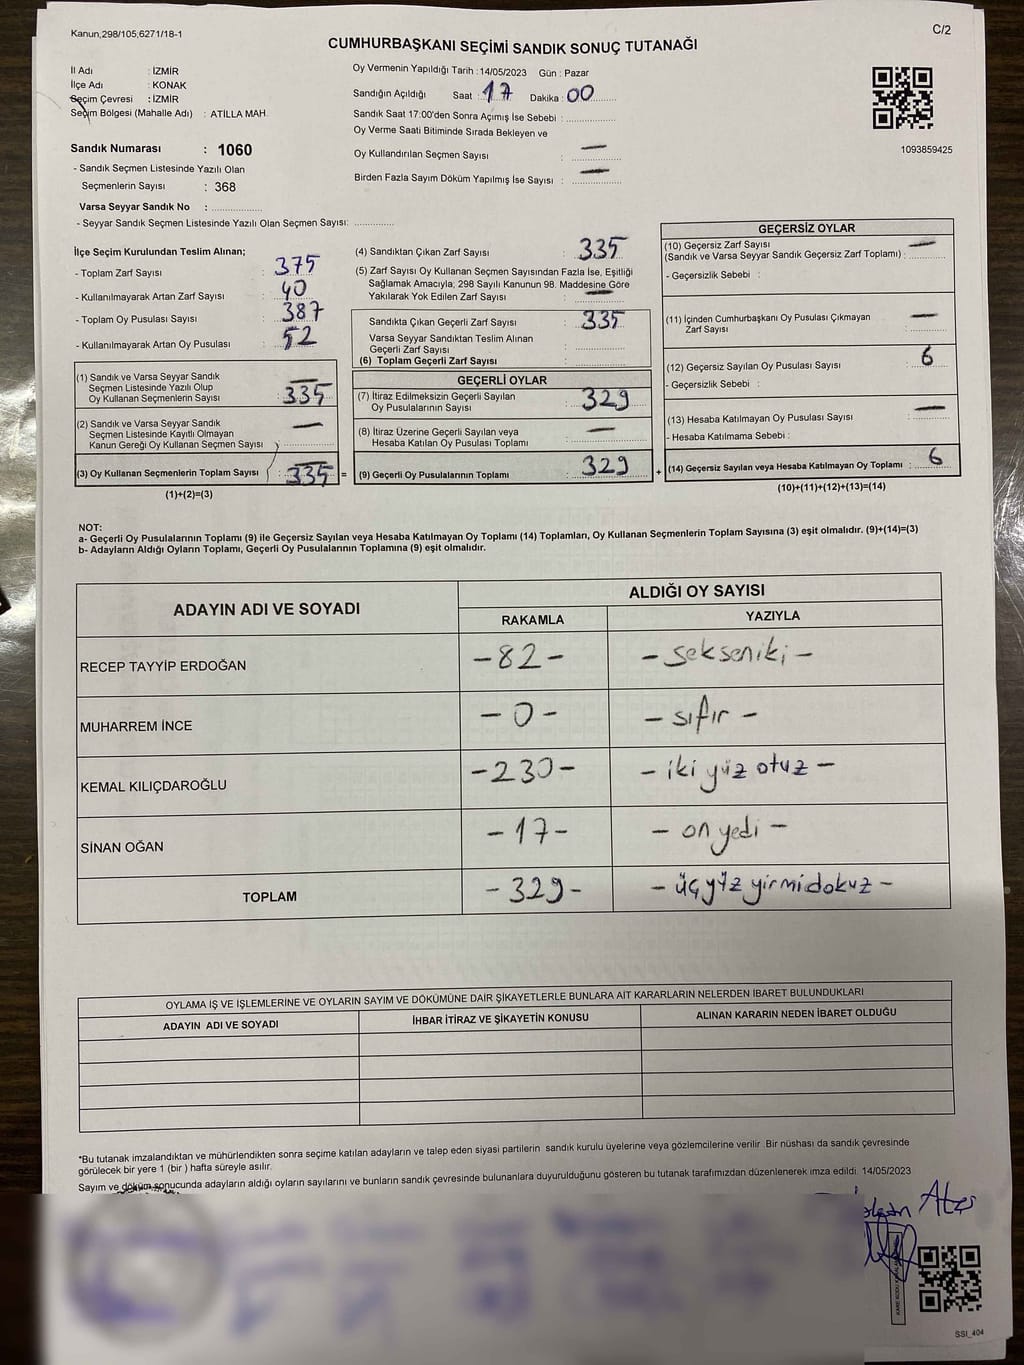 Kanun,298/105;6271/18-1
C/2
CUMHURBAŞKANI SEÇİMİ SANDIK SONUÇ TUTANAĞI
İl Adı : İZMİR
İlçe Adı : KONAK
Seçim Çevresi : İZMİR
Seçim Bölgesi (Mahalle Adı) : ATİLLA MAH.
Sandık Numarası : 1060
- Sandık Seçmen Listesinde Yazılı Olan
Seçmenlerin Sayısı : 368
Varsa Seyyar Sandık No : ..............
- Seyyar Sandık Seçmen Listesinde Yazılı Olan Seçmen Sayısı: ............
Oy Vermenin Yapıldığı Tarih :14/05/2023 Gün : Pazar
Sandığın Açıldığı Saat : 17 Dakika : 00
Sandık Saat 17:00'den Sonra Açımış İse Sebebi : ..............
Oy Verme Saati Bitiminde Sırada Bekleyen ve
Oy Kullandırılan Seçmen Sayısı : —
Birden Fazla Sayım Döküm Yapılmış İse Sayısı : —
1093859425
İlçe Seçim Kurulundan Teslim Alınan;
- Toplam Zarf Sayısı : 375
- Kullanılmayarak Artan Zarf Sayısı : 40
- Toplam Oy Pusulası Sayısı : 387
- Kullanılmayarak Artan Oy Pusulası : 52
(1) Sandık ve Varsa Seyyar Sandık
Seçmen Listesinde Yazılı Olup
Oy Kullanan Seçmenlerin Sayısı : 335
(2) Sandık ve Varsa Seyyar Sandık
Seçmen Listesinde Kayıtlı Olmayan
Kanun Gereği Oy Kullanan Seçmen Sayısı : —
(3) Oy Kullanan Seçmenlerin Toplam Sayısı : 335 =
(1)+(2)=(3)
(4) Sandıktan Çıkan Zarf Sayısı : 335
(5) Zarf Sayısı Oy Kullanan Seçmen Sayısından Fazla İse, Eşitliği
Sağlamak Amacıyla; 298 Sayılı Kanunun 98. Maddesine Göre
Yakılarak Yok Edilen Zarf Sayısı : —
Sandıkta Çıkan Geçerli Zarf Sayısı : 335
Varsa Seyyar Sandıktan Teslim Alınan
Geçerli Zarf Sayısı : ..............
(6) Toplam Geçerli Zarf Sayısı : ..............
GEÇERLİ OYLAR
(7) İtiraz Edilmeksizin Geçerli Sayılan
Oy Pusulalarının Sayısı : 329
(8) İtiraz Üzerine Geçerli Sayılan veya
Hesaba Katılan Oy Pusulası Toplamı : —
(9) Geçerli Oy Pusulalarının Toplamı : 329 +
GEÇERSİZ OYLAR
(10) Geçersiz Zarf Sayısı
(Sandık ve Varsa Seyyar Sandık Geçersiz Zarf Toplamı) : —
- Geçersizlik Sebebi :
(11) İçinden Cumhurbaşkanı Oy Pusulası Çıkmayan
Zarf Sayısı : —
(12) Geçersiz Sayılan Oy Pusulası Sayısı : 6
- Geçersizlik Sebebi :
(13) Hesaba Katılmayan Oy Pusulası Sayısı : —
- Hesaba Katılmama Sebebi :
(14) Geçersiz Sayılan veya Hesaba Katılmayan Oy Toplamı : 6
(10)+(11)+(12)+(13)=(14)
NOT:
a- Geçerli Oy Pusulalarının Toplamı (9) ile Geçersiz Sayılan veya Hesaba Katılmayan Oy Toplamı (14) Toplamları, Oy Kullanan Seçmenlerin Toplam Sayısına (3) eşit olmalıdır. (9)+(14)=(3)
b- Adayların Aldığı Oyların Toplamı, Geçerli Oy Pusulalarının Toplamına (9) eşit olmalıdır.
ADAYIN ADI VE SOYADI
ALDIĞI OY SAYISI
RAKAMLA YAZIYLA
RECEP TAYYİP ERDOĞAN -82- -sekseniki-
MUHARREM İNCE -0- -sıfır-
KEMAL KILIÇDAROĞLU -230- -iki yüz otuz-
SİNAN OĞAN -17- -on yedi-
TOPLAM -329- -üçyüz yirmidokuz-
OYLAMA İŞ VE İŞLEMLERİNE VE OYLARIN SAYIM VE DÖKÜMÜNE DAİR ŞİKAYETLERLE BUNLARA AİT KARARLARIN NELERDEN İBARET BULUNDUKLARI
ADAYIN ADI VE SOYADI İHBAR İTİRAZ VE ŞİKAYETİN KONUSU ALINAN KARARIN NEDEN İBARET OLDUĞU
*Bu tutanak imzalandıktan ve mühürlendikten sonra seçime katılan adayların ve talep eden siyasi partilerin sandık kurulu üyelerine veya gözlemcilerine verilir. Bir nüshası da sandık çevresinde
görülecek bir yere 1 (bir ) hafta süreyle asılır.
Sayım ve döküm sonucunda adayların aldığı oyların sayılarını ve bunların sandık çevresinde bulunanlara duyurulduğunu gösteren bu tutanak tarafımızdan düzenlenerek imza edildi. 14/05/2023
SSI_404